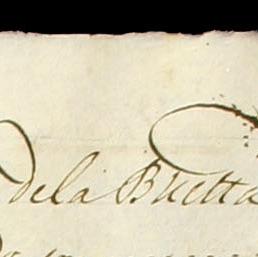 dela Buelta